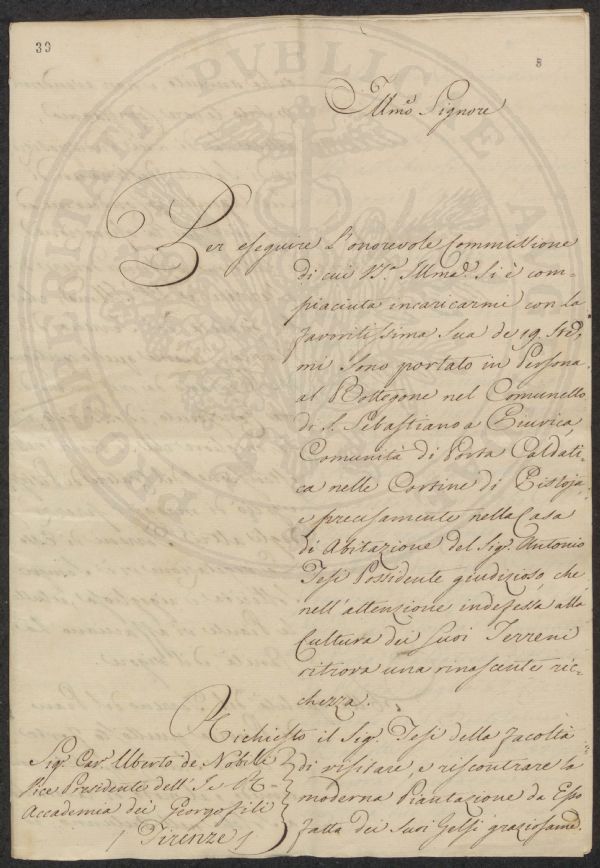 33
8
Illmo Signore
Per eseguire l'onorevole Commissione
di cui V.a Illma. si è com-
piaciuta incaricarmi con la
favoritissima Sua de 19. Ste,
mi sono portato in Persona
al Bottegone nel Comunello
di S. Sebastiano a Piuvica,
Comunità di Porta Caldati-
ca nelle Cortine di Pistoja,
e precisamente nella Casa
di Abitazione del Sig.r Antonio
Tesi Possidente giudizioso, che
nell'attenzione indefessa alla
Cultura dei Suoi Terreni
ritrova una rinascente ric-
chezza.
Richiesto il Sig.r Tesi della facoltà
di visitare, e riscontrare la
moderna Piantazione da Esso
fatta dei Suoi Gelsi graziosame.
Sig.r Cav.r Uberto de Nobili
Vice Presidente dell' I. e R.
Accademia dei Georgofili
Firenze
PROSPERITATI PUBLICAE